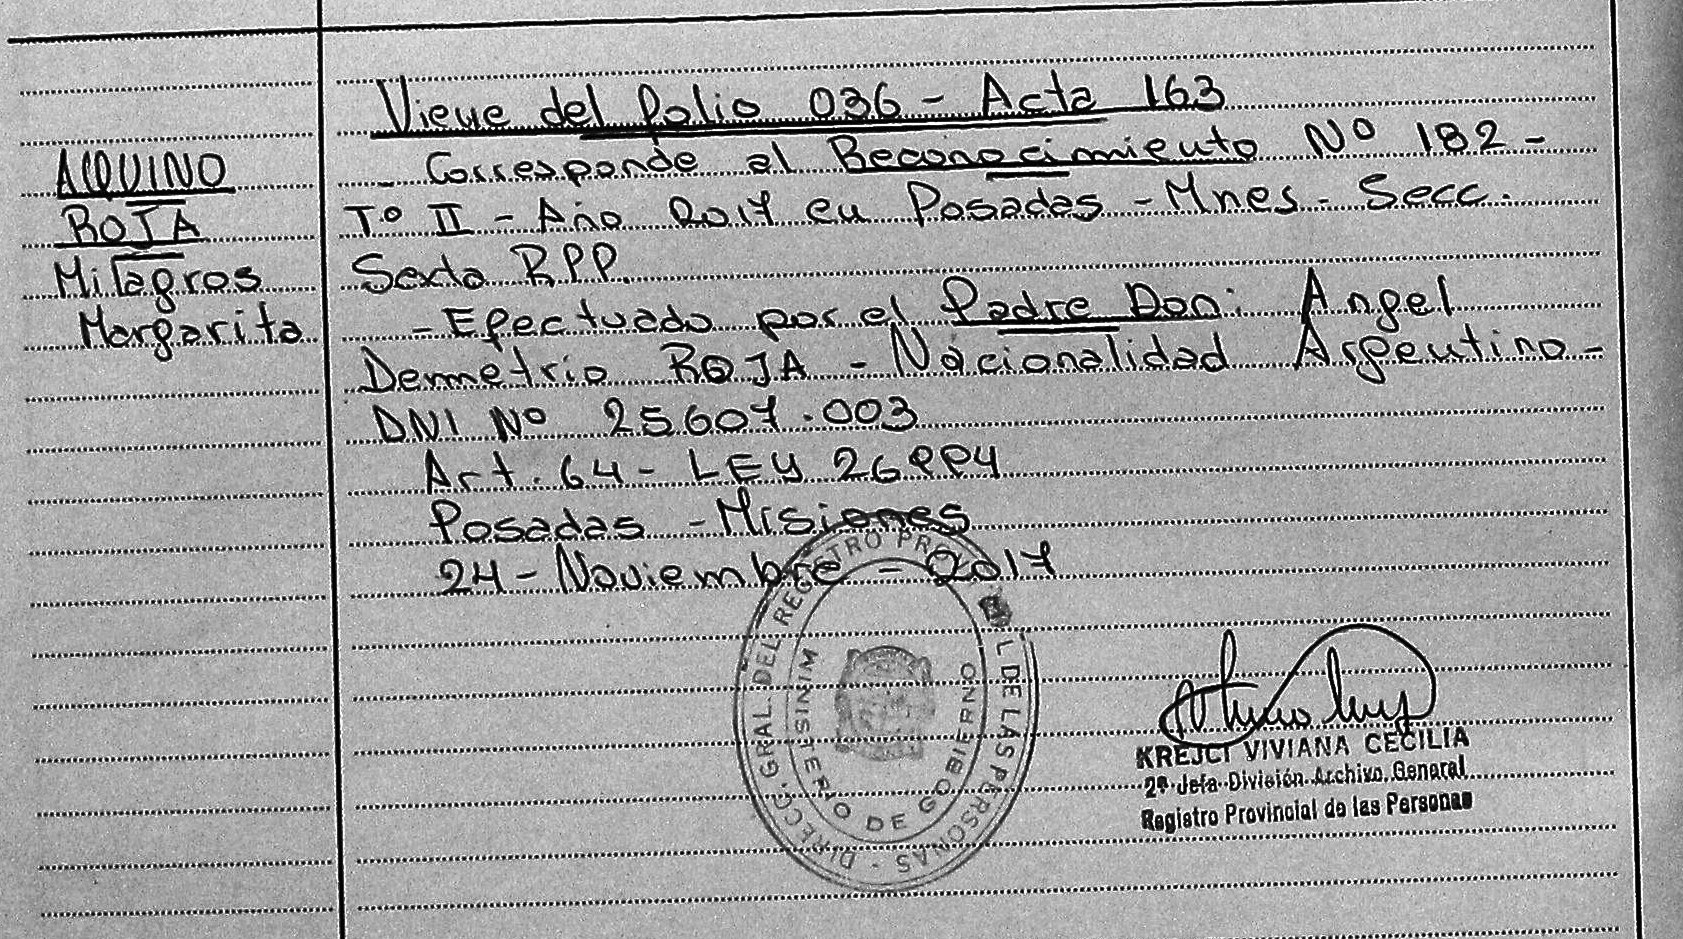 Viene del folio 036 - Acta 163
AQUINO
ROJA
Milagros
Margarita
- Corresponde al Reconocimiento Nº 182 -
Tº II - Año 2017 en Posadas - Mnes - Secc.
Sexta RPP.
- Efectuado por el Padre Don: Angel
Demetrio ROJA - Nacionalidad Argentino -
DNI Nº 25.607.003
Art. 64 - LEY 26994
Posadas - Misiones
24 - Noviembre - 2017
DIRECC. GRAL. DEL REGISTRO PROV L DE LAS PERSONAS -
MINISTERIO DE GOBIERNO
KREJCI VIVIANA CECILIA
2ª Jefa División Archivo General
Registro Provincial de las Personas